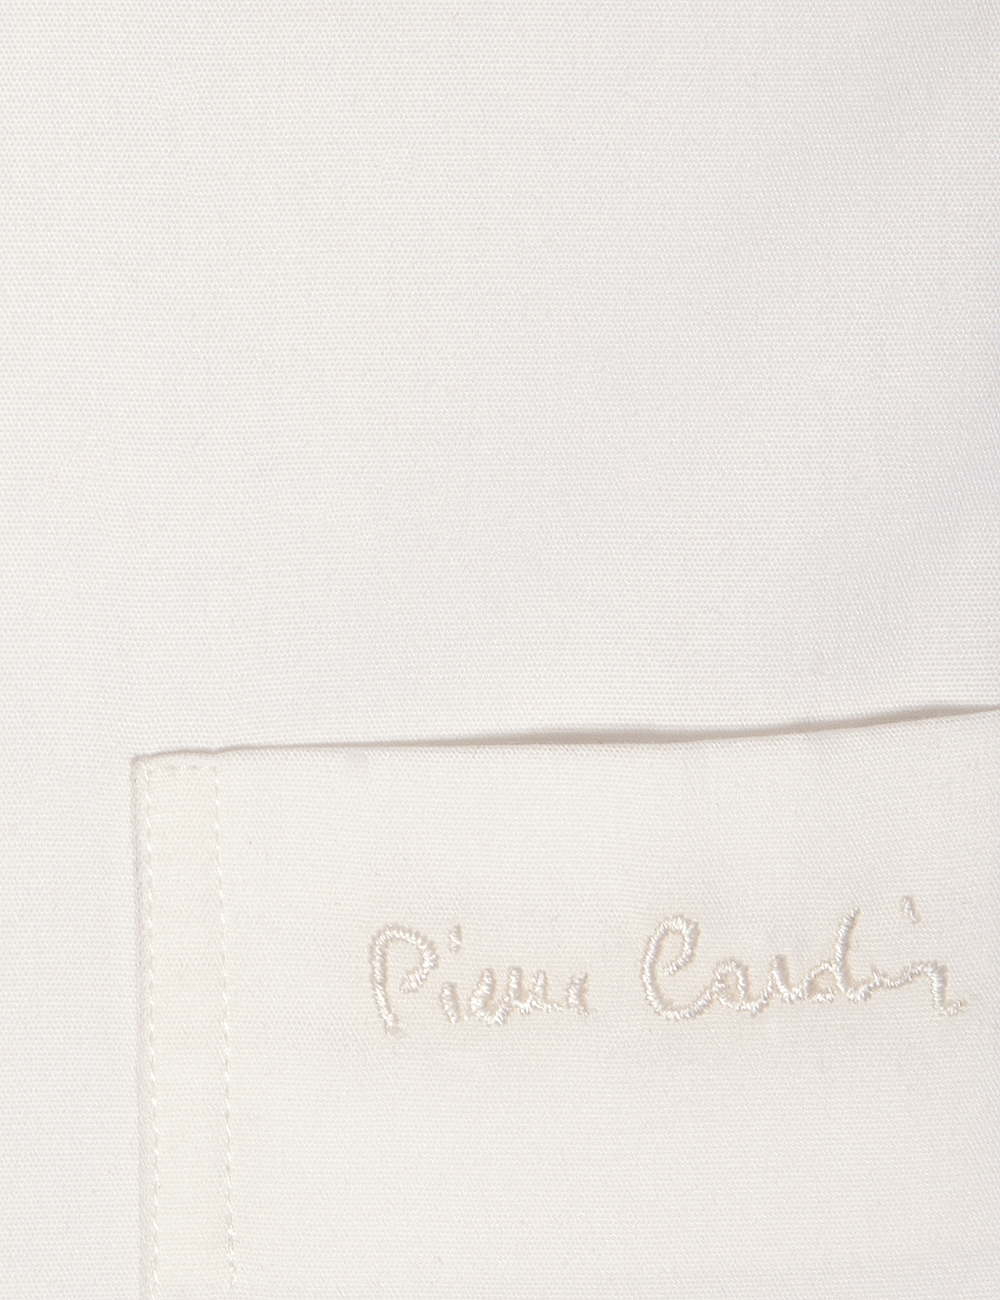 Pierre Cardin